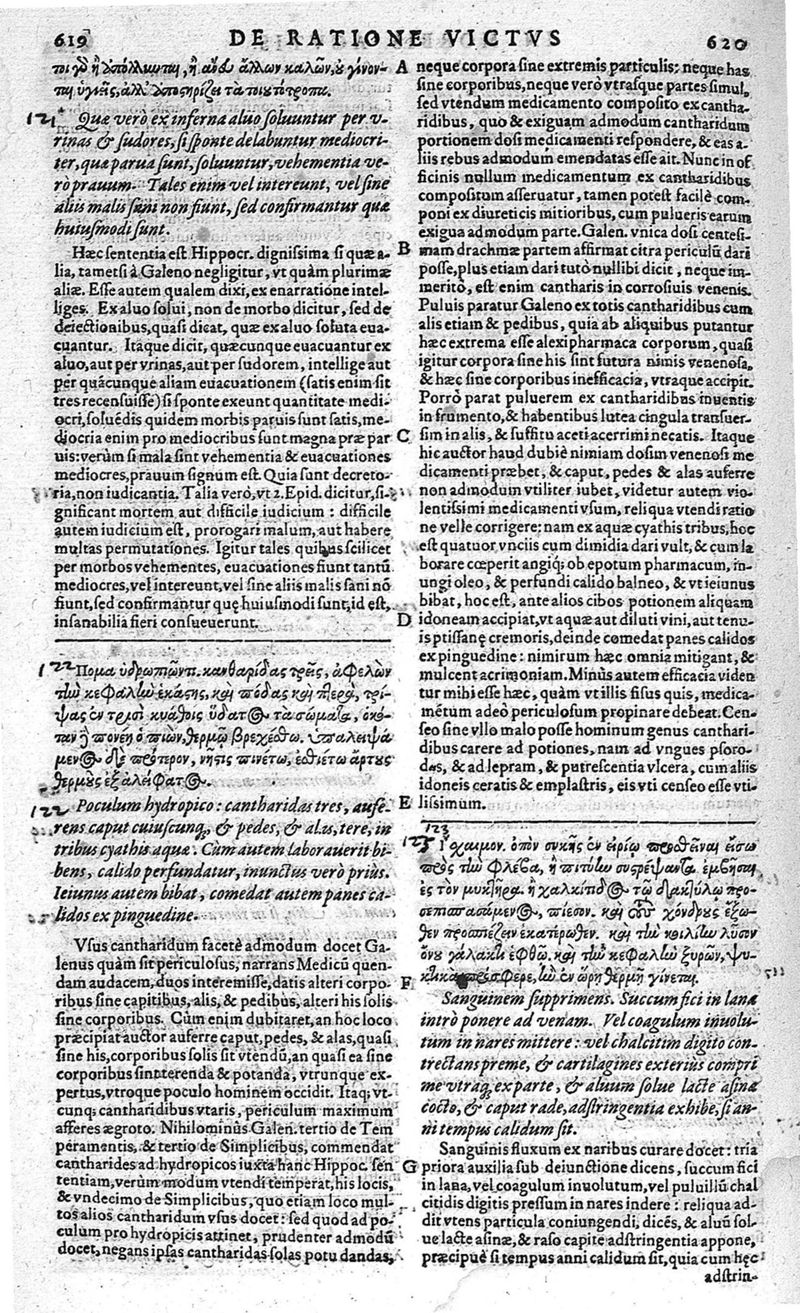 619 DE RATIONE VICTVS 620
121 Quæ verò ex inferna aluo soluuntur per v-
rinas & sudores, si sponte delabuntur mediocri-
ter, quæ parua sunt, soluuntur, vehementia ve-
rò prauum. Tales enim vel intereunt, vel sine
aliis malis sani non fiunt, sed confirmantur quæ
huiusmodi sunt.
Hæc sententia est Hippocr. dignissima si quæ a-
lia, tametsi à Galeno negligitur, vt quàm plurimæ
aliæ. Esse autem qualem dixi, ex enarratione intel-
liges. Ex aluo solui, non de morbo dicitur, sed de
deiectionibus, quasi dicat, quæ ex aluo soluta eua-
cuantur. Itaque dicit, quæcunque euacuantur ex
aluo, aut per vrinas, aut per sudorem, intellige aut
per quãcunque aliam euacuationem (satis enim sit
tres recensuisse) si sponte exeunt quantitate medi-
ocri, soluẽdis quidem morbis paruis sunt satis, me-
diocria enim pro mediocribus sunt magna præ par
uis: verùm si mala sint vehementia & euacuationes
mediocres, prauum signum est. Quia sunt decreto-
ria, non iudicantia. Talia verò, vt 2. Epid. dicitur, si-
gnificant mortem aut difficile iudicium: difficile
autem iudicium est, prorogari malum, aut habere
multas permutationes. Igitur tales quibus scilicet
per morbos vehementes, euacuationes fiunt tantũ
mediocres, vel intereunt, vel sine aliis malis sani nõ
fiunt, sed confirmantur quę huiusmodi sunt, id est,
insanabilia fieri consueuerunt.
122 Πομα ὑδρωπιῶντι. κανθαρίδας τρεῖς, ἀφελὼν
τὴν κεφαλὴν ἑκάστης, καὶ πόδας καὶ πτερὰ, τρί-
ψας ἐν τρισὶ κυάθοις ὕδατος τὰ σώματα, ὁκό-
ταν ἢ πονέῃ ὁ πιὼν, θερμῷ βρεχέσθω. ὑπαλειψά
μενος δὲ πρότερον, νῆστις πινέτω, ἐσθιέτω ἄρτους
θερμοὺς ἐξ ἀλείφατος.
122 Poculum hydropico: cantharidas tres, aufe-
rens caput cuiuscunq;, & pedes, & alas, tere, in
tribus cyathis aquæ. Cùm autem laborauerit bi-
bens, calido perfundatur, inunctus verò priùs.
Ieiunus autem bibat, comedat autem panes ca-
lidos ex pinguedine.
Vsus cantharidum facetè admodum docet Ga-
lenus quàm sit periculosus, narrans Medicũ quen-
dam audacem, duos interemisse, datis alteri corpo-
ribus sine capitibus, alis, & pedibus, alteri his solis
sine corporibus. Cùm enim dubitaret, an hoc loco
præcipiat auctor auferre caput, pedes, & alas, quasi
sine his, corporibus solis sit vtendũ, an quasi ea sine
corporibus sint terenda & potanda, vtrunque ex-
pertus, vtroque poculo hominem occidit. Itaq; vt-
cunq; cantharidibus vtaris, periculum maximum
afferes ægroto. Nihilominùs Galen. tertio de Tem
peramentis, & tertio de Simplicibus, commendat
cantharides ad hydropicos iuxta hanc Hippoc. sen
tentiam, verùm modum vtendi temperat, his locis,
& vndecimo de Simplicibus, quo etiam loco mul-
tos alios cantharidum vsus docet: sed quod ad po-
culum pro hydropicis attinet, prudenter admodũ
docet, negans ipsas cantharidas solas potu dandas,
A neque corpora sine extremis particulis: neque has
sine corporibus, neque verò vtrasque partes simul,
sed vtendum medicamento composito ex cantha-
ridibus, quo & exiguam admodum cantharidum
portionem dosi medicamenti respondere, & eas a-
liis rebus admodum emendatas esse ait. Nunc in of
ficinis nullum medicamentum ex cantharidibus
compositum asseruatur, tamen potest facilè com-
poni ex diureticis mitioribus, cum pulueris earum
exigua admodum parte. Galen. vnica dosi centesi-
B mam drachmæ partem affirmat citra periculũ dari
posse, plus etiam dari tutò nullibi dicit, neque im-
meritò, est enim cantharis in corrosiuis venenis.
Puluis paratur Galeno ex totis cantharidibus cum
alis etiam & pedibus, quia ab aliquibus putantur
hæc extrema esse alexipharmaca corporum, quasi
igitur corpora sine his sint futura nimis venenosa,
& hæc sine corporibus inefficacia, vtraque accipit.
Porrò parat puluerem ex cantharidibus inuentis
in frumento, & habentibus lutea cingula transuer-
C sim in alis, & suffitu aceti acerrimi necatis. Itaque
hic auctor haud dubiè nimiam dosim venenosi me
dicamenti præbet, & caput, pedes & alas auferre
non admodum vtiliter iubet, videtur autem vio-
lentissimi medicamenti vsum, reliqua vtendi ratio
ne velle corrigere: nam ex aquæ cyathis tribus, hoc
est quatuor vnciis cum dimidia dari vult, & cum la
borare cœperit angiq; ob epotum pharmacum, in-
ungi oleo, & perfundi calido balneo, & vt ieiunus
bibat, hoc est, ante alios cibos potionem aliquam
D idoneam accipiat, vt aquæ aut diluti vini, aut tenu-
is ptissanę cremoris, deinde comedat panes calidos
ex pinguedine: nimirum hæc omnia mitigant, &
mulcent acrimoniam. Minùs autem efficacia viden
tur mihi esse hæc, quàm vt illis fisus quis, medica-
mẽtum adeò periculosum propinare debeat. Cen-
seo sine vllo malo posse hominum genus canthari-
dibus carere ad potiones, nam ad vngues psoro-
des, & ad lepram, & putrescentia vlcera, cum aliis
idoneis ceratis & emplastris, eis vti censeo esse vti-
E lissimum.
123
Ἴσχαιμον. ὀπὸν συκῆς ἐν εἰρίῳ προσθεῖναι εἴσω
πρὸς τὴν φλέβα, ἢ πιτύην συστρέψαντα ἐμβῆσαι
ἐς τὸν μυκτῆρα. ἢ χαλκίτιδος τῷ δακτύλῳ προ-
σεπισπασάμενος, πίεσον. καὶ τοὺς χόνδρους ἔξω-
θεν προσπιέζειν ἑκατέρωθεν. καὶ τὴν κοιλίην λῦσον
ὄνου γάλακτι ἑφθῷ. καὶ τὴν κεφαλὴν ξυρῶν, ψυ-
F κτικὰ πρόσφερε, ἢν ἐν ὥρῃ θερμῇ γίνεται.
Sanguinem supprimens. Succum fici in lana
intrò ponere ad venam. Vel coagulum inuolu-
tum in nares mittere: vel chalcitim digito con-
trectans preme, & cartilagines exteriùs compri
me vtraq; ex parte, & aluum solue lacte asinæ
cocto, & caput rade, adstringentia exhibe, si an-
ni tempus calidum sit.
Sanguinis fluxum ex naribus curare docet: tria
G priora auxilia sub deiunctione dicens, succum fici
in lana, vel coagulum inuolutum, vel puluillũ chal
citidis digitis pressum in nares indere: reliqua ad-
dit vtens particula coniungendi, dicẽs, & aluũ sol-
ue lacte asinæ, & raso capite adstringentia appone,
præcipuè si tempus anni calidum sit, quia cum hęc
adstrin-